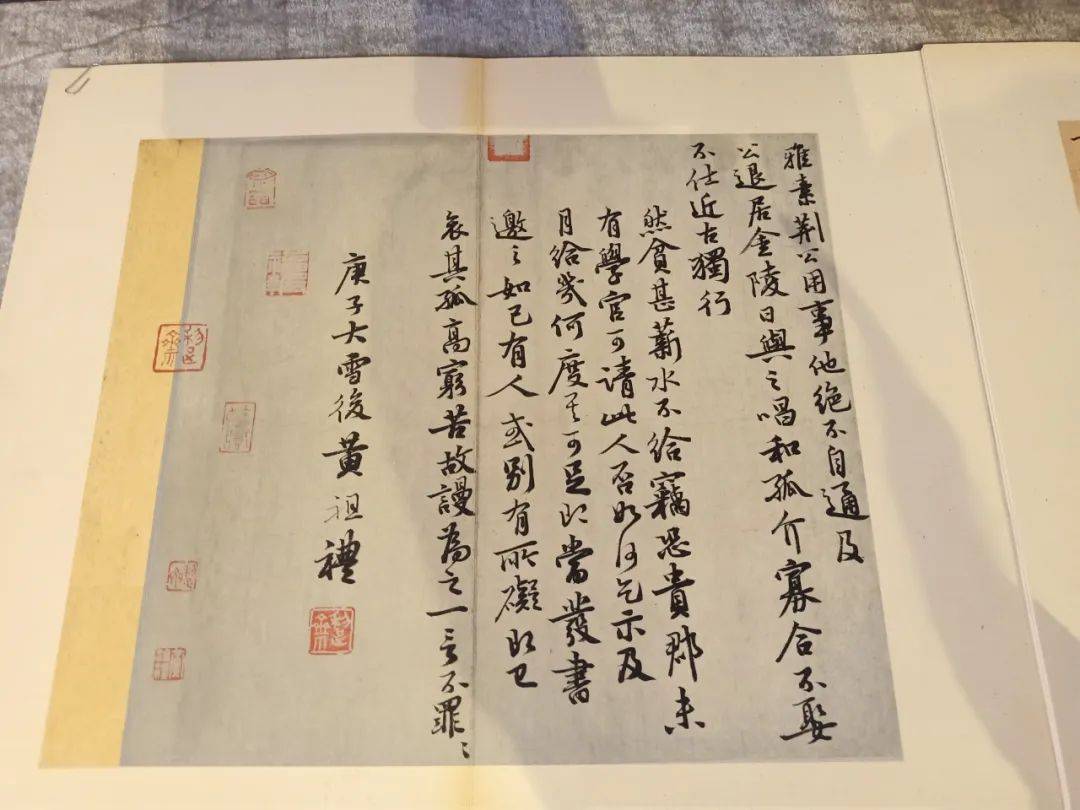 雅素荆公用事他绝不自通及
公退居金陵日與之唱和孤介寡合不娶
不仕近古獨行
然貧甚薪水不給竊恐貴郡未
有學官可請此人否如何乞示及
月給幾何度其可足即當發書
邀之如已有人或别有所礙即已
哀其孤高窮苦故謾為之一言不罪〻
庚子大雪後黄祖禮